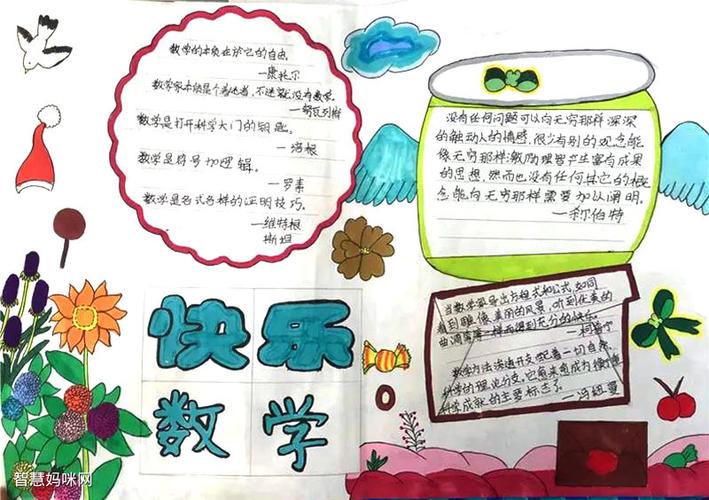 数学的本质在於它的自由
—康托尔
数学家本质是个着迷者，不迷就没有数学。
—努瓦列斯
数学是打开科学大门的钥匙。
—培根
数学是符号加逻辑。
—罗素
数学是各式各样的证明技巧。
—维特根
斯坦
没有任何问题可以向无穷那样深深
的触动人的情感，很少有别的观念能
像无穷那样激励理智产生富有成果
的思想，然而也没有任何其它的概
念能向无穷那样需要加以阐明。
—希尔伯特
当数学家导出方程式和公式，如同
看到雕像、美丽的风景，听到优美的
曲调等等一样而得到充分的快乐
—柯普宁
数学方法渗透并支配着一切自然
科学的理论分支。它愈来愈成为衡量
科学成就的主要标志了
—冯纽曼
快乐
数学
智慧妈咪网